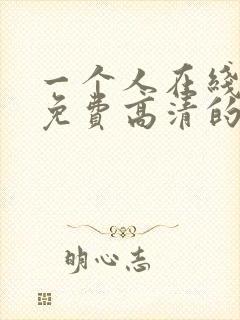 一个人在线
免费高清的
明心志